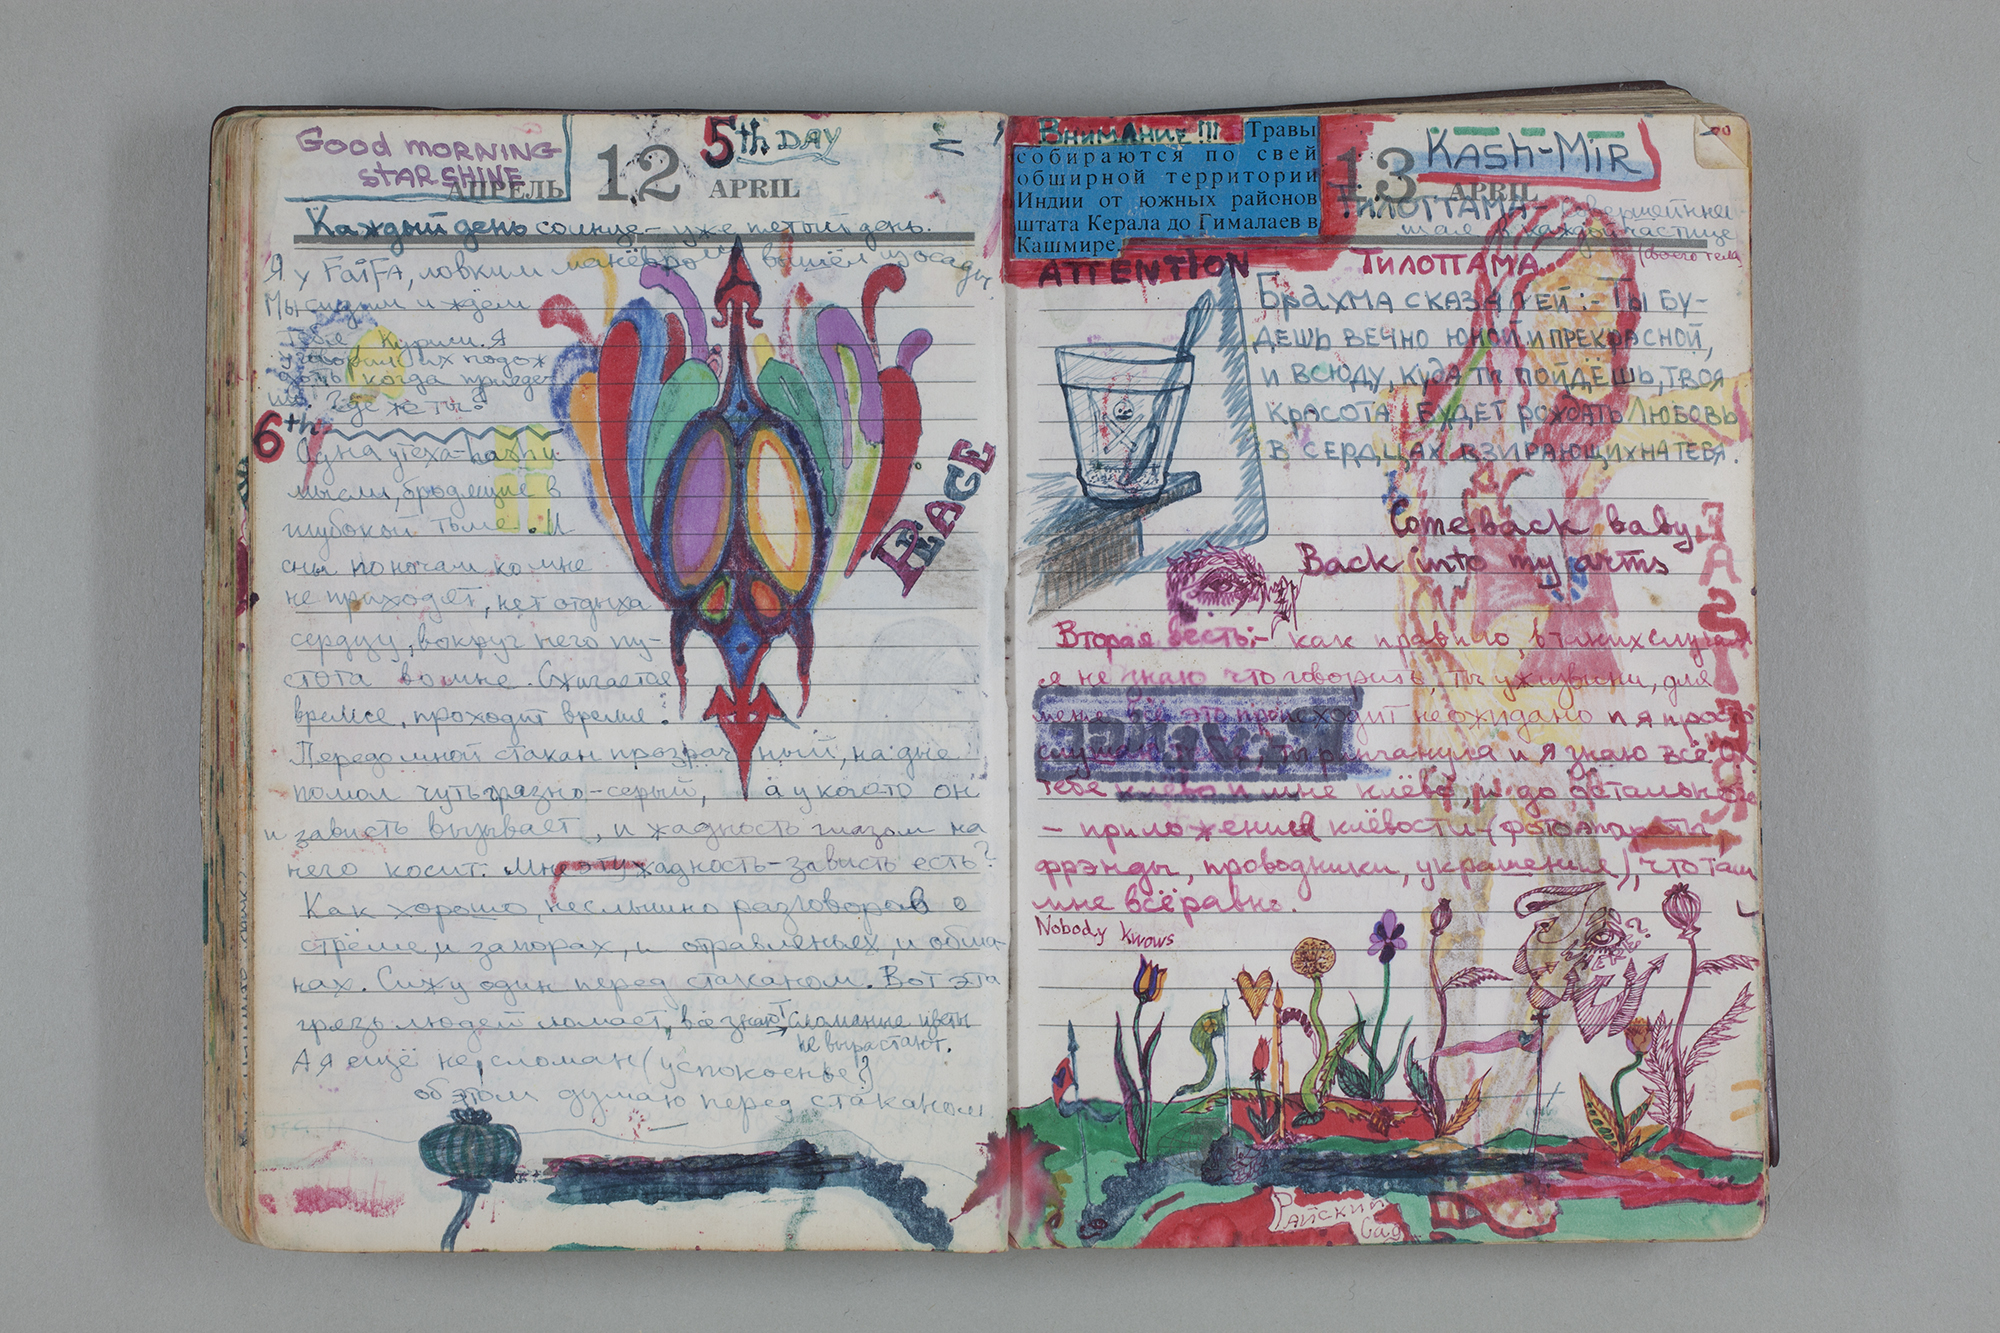 Good MORNING
STARSHINE
АПРЕЛЬ 12 APRIL
5th DAY
Каждый день солнце – уже пятый день.
Я у FaiFA, ловким манёвром вышел из осады
Мы сидим и ждём
тебя. Курим. Я
уговорил их подож
дать когда приедешь
ты. Где же ты?
6th
Одна утеха – наши
мысли, бродящие в
глубокой тьме. И
сны по ночам ко мне
не приходят, нет отдыха
сердцу, вокруг него пу-
стота во мне. Сжигается
время, проходит время.
Передо мной стакан прозрачный, на дне
помол чуть грязно-серый, а у кого-то он
и зависть вызывает, и жадность глазом на
него косит. Мне эту жадность-зависть есть?
Как хорошо, неслышно разговоров о
стрёме, и запорах, и отравленьях, и обма-
нах. Сижу один перед стаканом. Вот эта
грязь людей ломает, всё знаю! Сломанные цветы
не вырастают.
А я ещё не сломан (успокоенье?)
об этом думаю перед стаканом
PEACE
Внимание!!! Травы
собираются по свей
обширной территории
Индии от южных районов
штата Керала до Гималаев в
Кашмире.
ATTENTION
13 APRIL
KASH-MIR
ТИЛОТТАМА – совершенная
в каждой частице
своего тела
ТИЛОТТАМА
Брахма сказал ей:- Ты бу-
дешь вечно юной и прекрасной,
и всюду, куда ты пойдёшь, твоя
красота будет рождать любовь
в сердцах взирающих на тебя.
Come back baby,
Back into my arms
Вторая весть:- как правило, в таких случаях
я не знаю что говорить, ты уж извини, для
меня всё это происходит неожиданно и я просто
и я знаю всё.
тебе клёво и мне клёво, и до остального
– приложения клёвости (фотоаппараты,
фрэнды, проводники, украшения), что там
мне всё равно.
Nobody knows
WHERE?
Райский
Сад